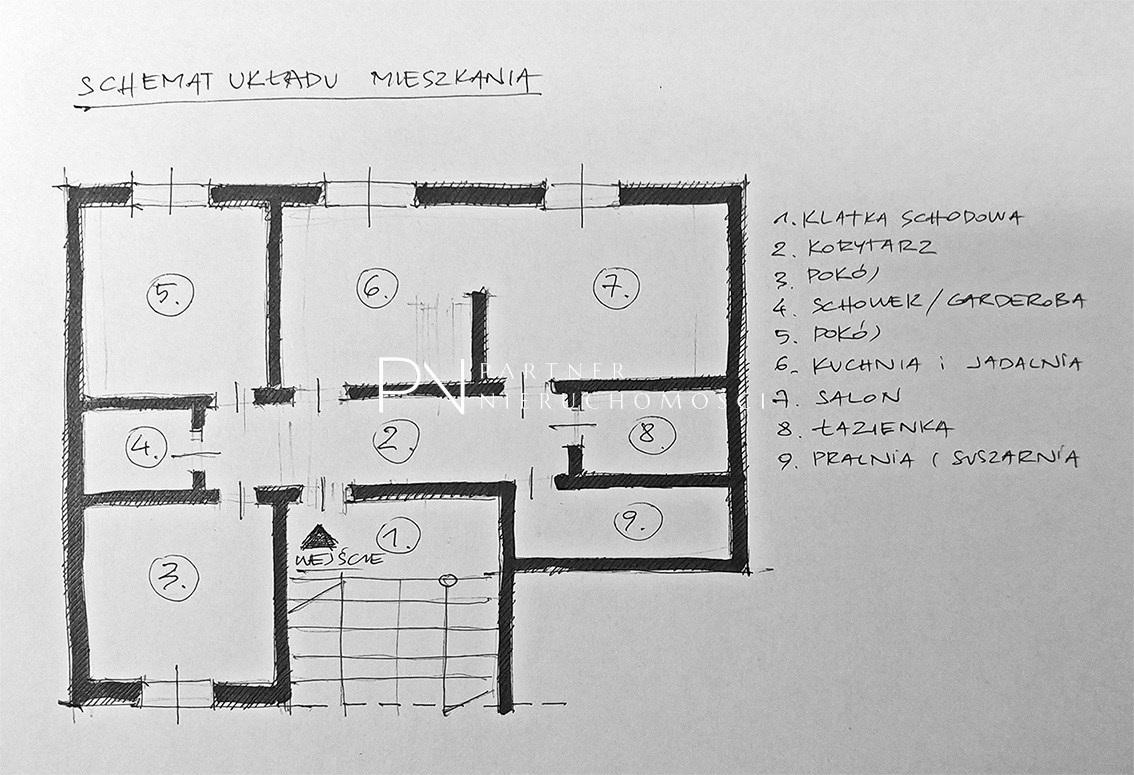 SCHEMAT UKŁADU MIESZKANIA
1. KLATKA SCHODOWA
2. KORYTARZ
3. POKÓJ
4. SCHOWEK/GARDEROBA
5. POKÓJ
6. KUCHNIA i JADALNIA
7. SALON
8. ŁAZIENKA
9. PRALNIA i SUSZARNIA
5.
6.
7.
PN PARTNER
NIERUCHOMOŚCI
4.
2.
8.
9.
1.
WEJŚCIE
3.